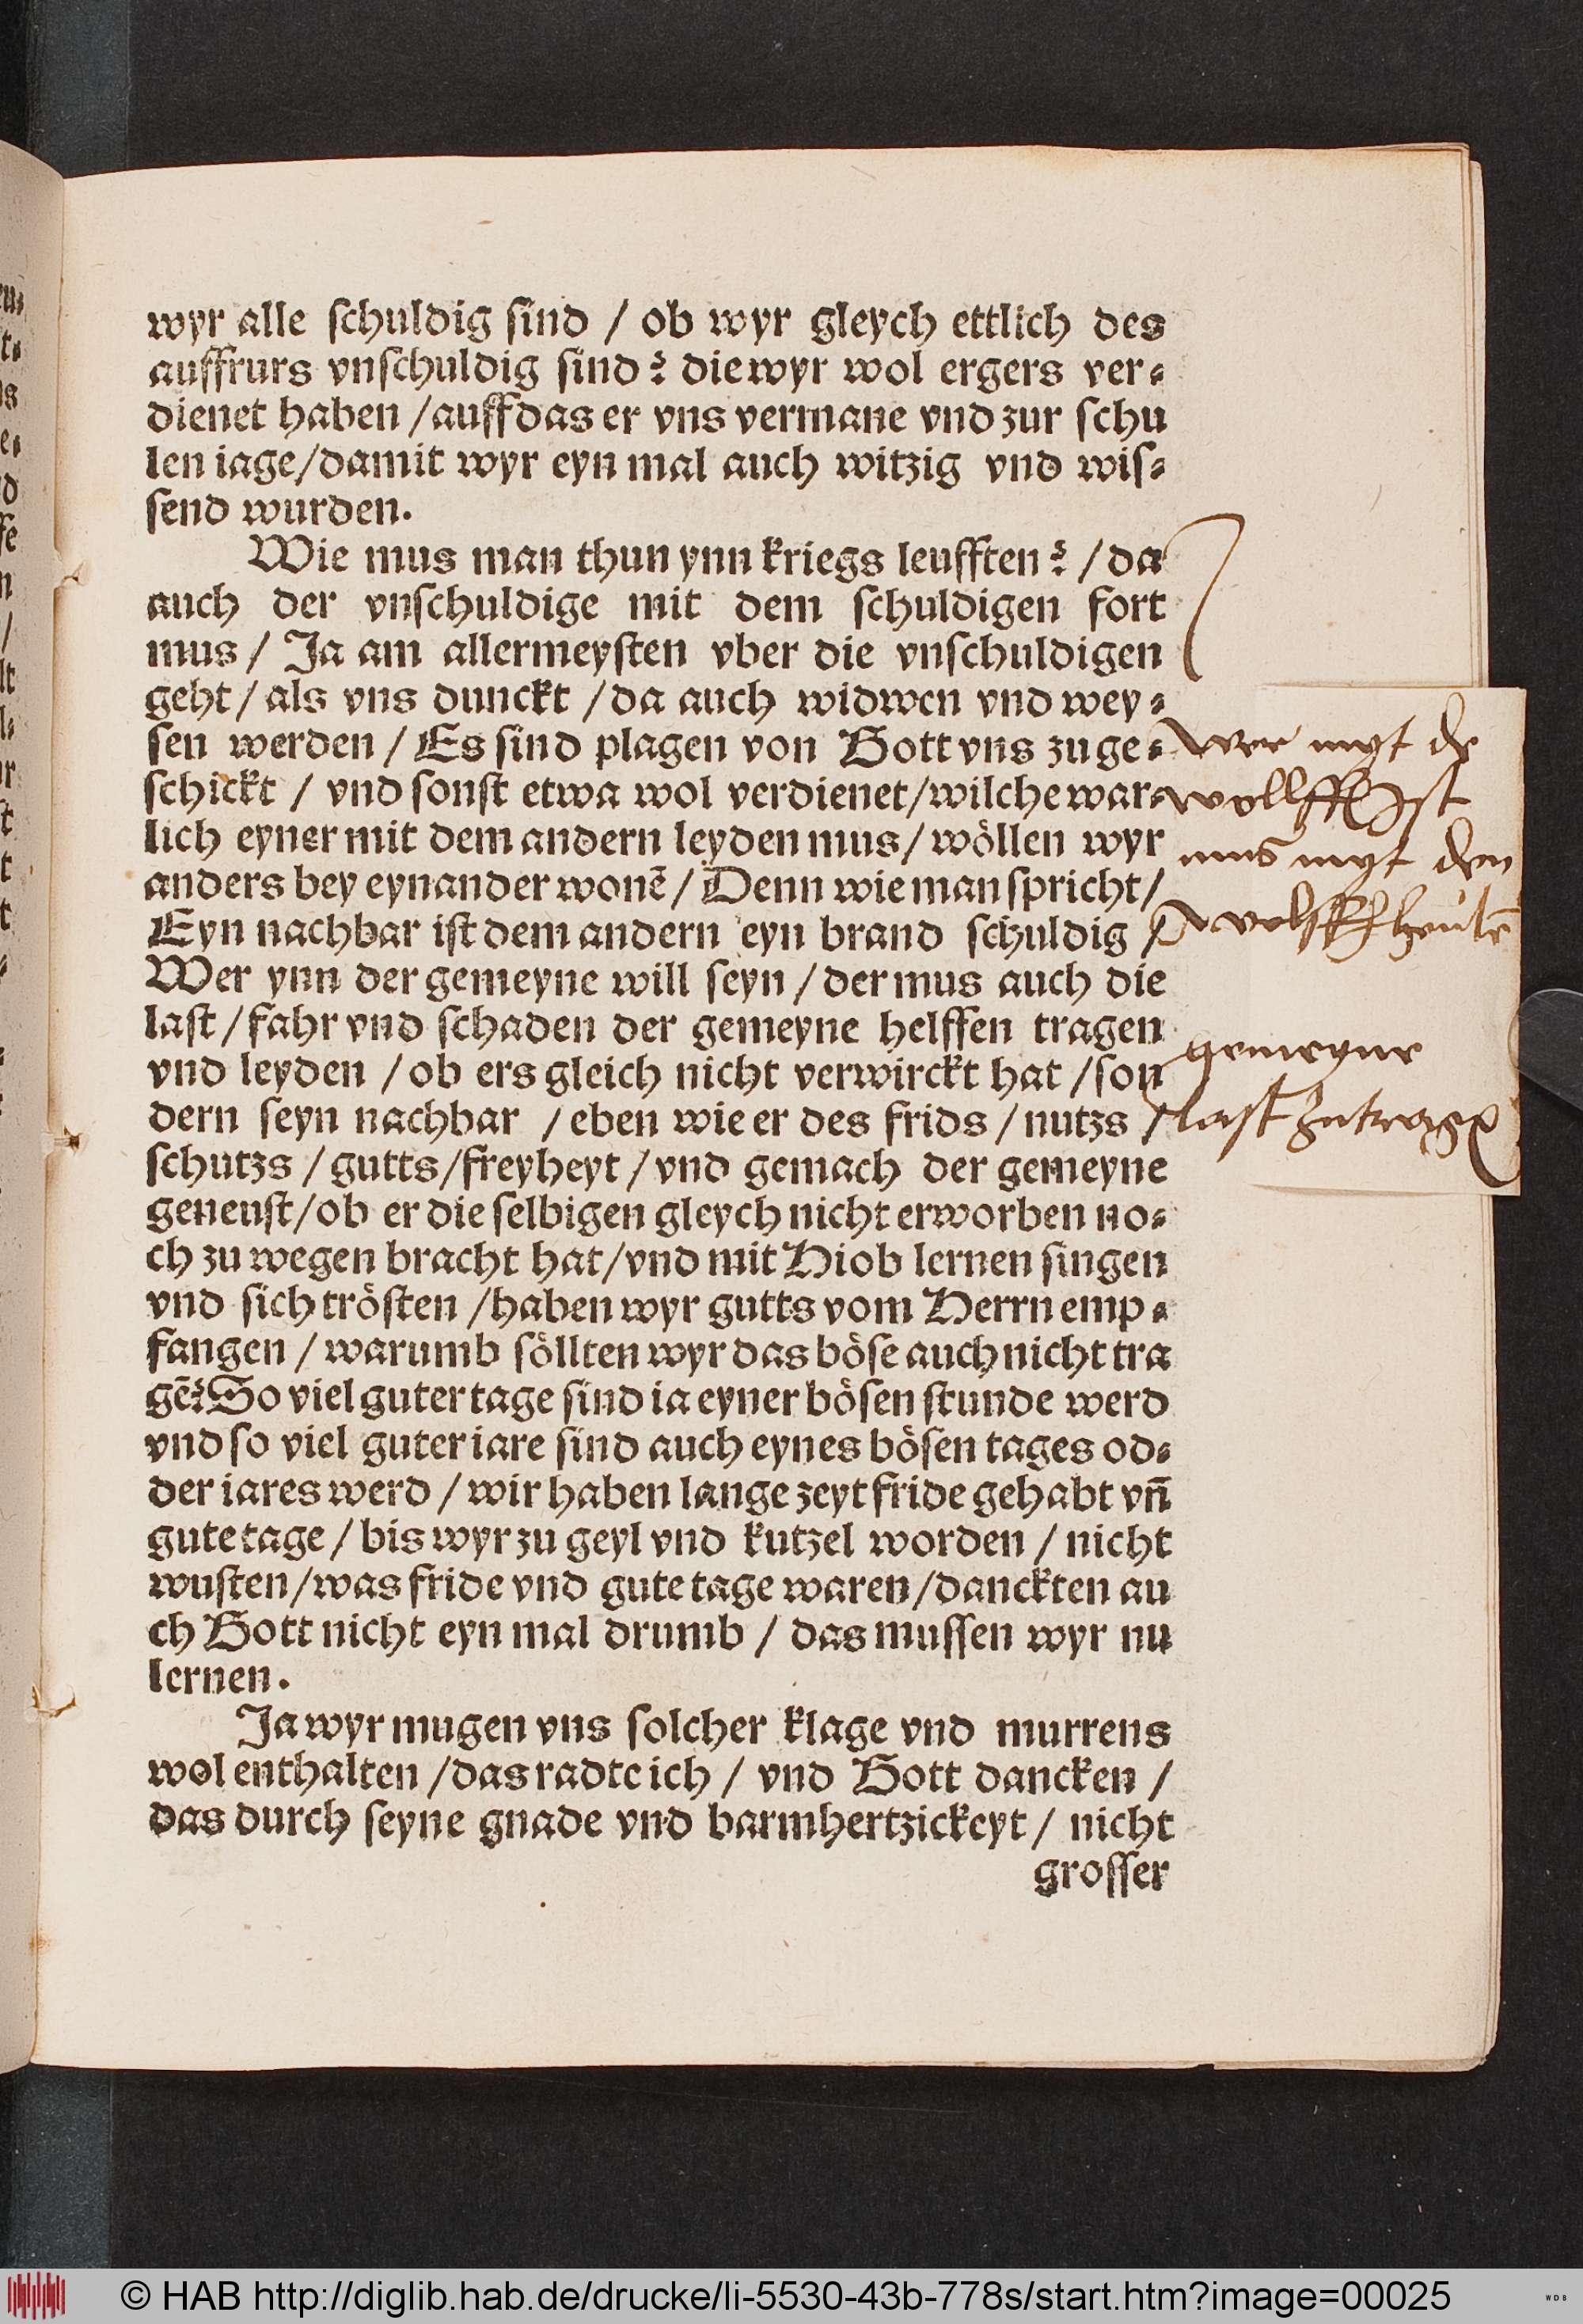 wyr alle ſchuldig ſind / ob wyr gleych ettlich des
auffrurs vnſchuldig ſind? die wyr wol ergers ver⸗
dienet haben / auff das er vns vermane vnd zur ſchu
len iage / damit wyr eyn mal auch witzig vnd wiſ⸗
ſend wurden.
Wie mus man thun ynn kriegs leufften? / da
auch der vnſchuldige mit dem ſchuldigen fort
mus / Ja am allermeyſten vber die vnſchuldigen
geht / als vns dunckt / da auch widwen vnd wey⸗
ſen werden / Es ſind plagen von Gott vns zu ge⸗
ſchickt / vnd ſonſt etwa wol verdienet / wilche war⸗
lich eyner mit dem andern leyden mus / wöllen wyr
anders bey eynander wonē / Denn wie man ſpricht /
Eyn nachbar iſt dem andern eyn brand ſchuldig /
Wer ynn der gemeyne will ſeyn / der mus auch die
laſt / fahr vnd ſchaden der gemeyne helffen tragen
vnd leyden / ob ers gleich nicht verwirckt hat / ſon
dern ſeyn nachbar / eben wie er des frids / nutzs /
ſchutzs / gutts / freyheyt / vnd gemach der gemeyne
geneuſt / ob er die ſelbigen gleych nicht erworben no⸗
ch zu wegen bracht hat / vnd mit Hiob lernen ſingen
vnd ſich tröſten / haben wyr gutts vom Herrn emp⸗
fangen / warumb ſöllten wyr das böſe auch nicht tra
gē? So viel guter tage ſind ia eyner böſen ſtunde werd
vnd ſo viel guter iare ſind auch eynes böſen tages od⸗
der iares werd / wir haben lange zeyt fride gehabt vn̄
gute tage / bis wyr zu geyl vnd kutzel worden / nicht
wuſten / was fride vnd gute tage waren / danckten au
ch Gott nicht eyn mal drumb / das muſſen wyr nu
lernen.
Ja wyr mugen vns ſolcher klage vnd murrens
wol enthalten / das radte ich / vnd Gott dancken /
das durch ſeyne gnade vnd barmhertzickeyt / nicht
groſſer
wer myt de
wollff Iſt
mus myt den
wolff heulē
gemeyne
laſt zutragē
© HAB http://diglib.hab.de/drucke/li-5530-43b-778s/start.htm?image=00025
WDB